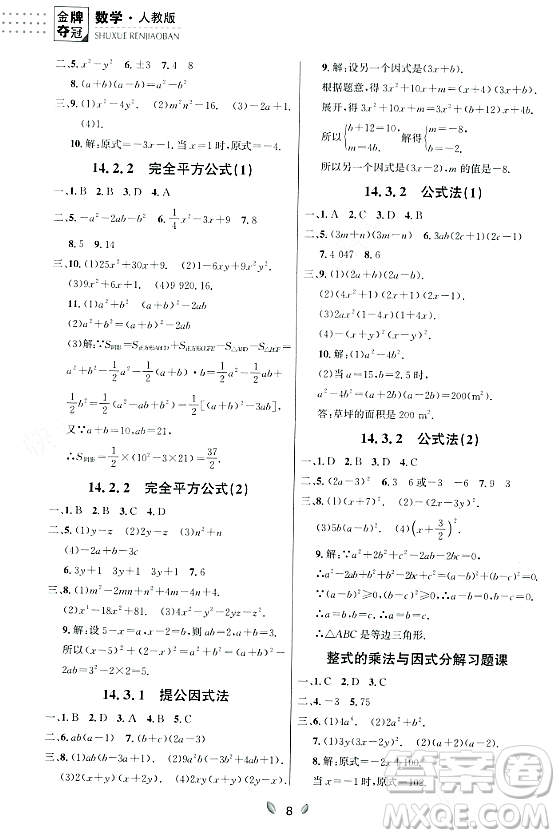 金牌夺冠 数学·人教版
SHUXUE RENJIAOBAN
二、5. x²-y² 6. ±3 7. 8
8. (a+b)(a-b)=a²-b²
三、9. (1)x²-4y². (2)m²n²-16. (3)a²-1.
(4)1.
10. 解:原式=-3x-1. 当 x=1 时,原式=-4.
14.2.2 完全平方公式(1)
一、1. B 2. B 3. D 4. A
二、5. -a²-2ab-b² 6. ¼x²-xy+y² 7. 9
8. 5 9. 14
三、10. (1)25x²+10x+1. (2)a²-b²+2b-1.
(3)9 604. (4)9 920.16.
11. (1)a²+b² (a+b)²-2ab
(2)a²+b²=(a+b)²-2ab
(3)解:∵S阴影=S正方形ABCD+S正方形CGFE-S△ABD-S△BGF=
a²+b²-½a²-½(a+b)·b=½a²-½ab+
½b²=½(a²+b²-ab)=½[(a+b)²-3ab],
又∵a+b=10,ab=21,
∴S阴影=½×(10²-3×21)=37/2.
14.2.2 完全平方公式(2)
一、1. C 2. D 3. C 4. C
二、5. (1)y-z (2)-y+z (3)-5a²-b²
(4)-2a-4c
6. 3y+1 3y+1 7. 6
三、8. (1)m²-2mn+n²+4m-4n+4.
(2)x²-4y²+12yz-9z².
9. 解:设 5-3x=a,4x-3=b,则 a+b=
5-3x+4x-3=x+2,所以(x+2)²-2(5-
3x)(4x-3)=(a+b)²-2ab=a²+b²=
(a-b)²+2ab=3²+2×2=13.
14.3.1 提公因式法
一、1. C 2. D 3. D 4. B
二、5. ab 6. (a-b)(2a-3) 7. 15
三、8. (1)ab(a-b). (2)9a(9a²-b²+b).
(3)2(x+y)(x-y). (4)2x(x+y).
9. 解:设另一个因式为(3x+b).
根据题意,得 3x²+10x+m=(x+4)(3x+b).
展开,得 3x²+10x+m=3x²+(b+12)x+4b.
所以{b+12=10, m=4b. 解得{b=-2, m=-8.
所以另一个因式为(3x-2),m 的值是-8.
14.3.2 公式法(1)
一、1. A 2. C 3. D 4. C
二、5. (m+n)(m-n) 6. 3ab(2a+1)(2a-1)
7. 4 047 8. 6
三、9. (1)(x+4)(x-4).
(2)(2x+5y)(2x-5y).
(3)(4x²+1)(2x+1)(2x-1).
(4)2ax(1-4x)(1+4x).
10. 解:(1)a²-4b².
(2)当 a=15,b=2.5 时,
a²-4b²=(a+2b)(a-2b)=200(m²).
答:草坪的面积是 200 m².
14.3.2 公式法(2)
一、1. D 2. C 3. D 4. D
二、5. (2a-3)² 6. 3 6或-6 7. 9 3
三、8. (1)-(a-b)². (2)-y(2x-3y)².
(3)0.5(x-2)². (4)(x+y+3/2)².
9. 解:∵a²+2b²+c²-2ab-2bc=0,
∴a²-2ab+b²+b²-2bc+c²=0.
∴(a-b)²+(b-c)²=0.
∵(a-b)²≥0,(b-c)²≥0,
∴a-b=0,b-c=0,∴a=b=c.
∴△ABC 是等边三角形.
整式的乘法与因式分解习题课
一、1. C 2. D 3. C
二、4. -3 5. 75
三、6. (1)4a⁴. (2)a²+b²+2ab-1.
7. (1)3y(2x-y)². (2)(a-b)(a-b+1).
8. 解:原式=-x+100
当 x=1 时,原式=-102.
8